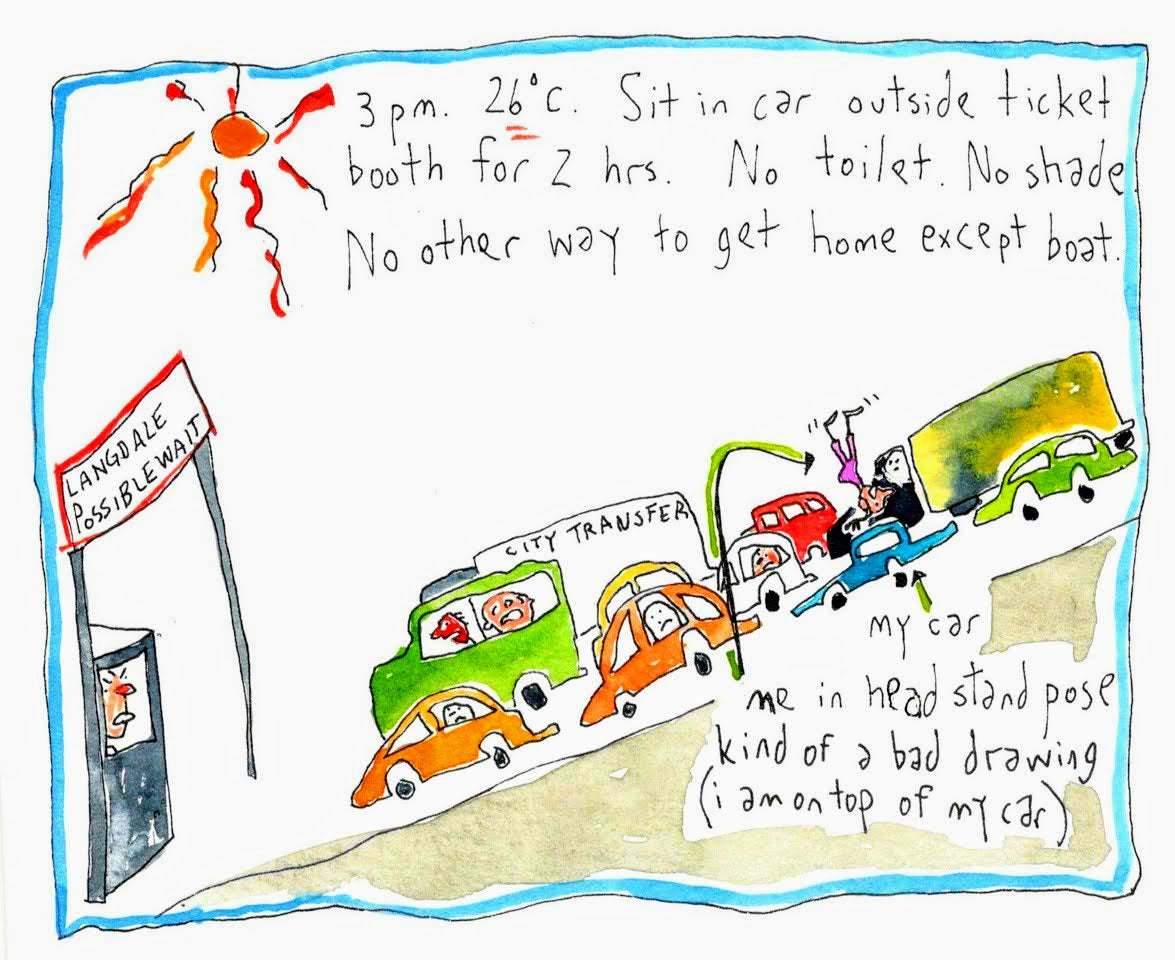 3 pm. 26°C. Sit in car outside ticket
booth for 2 hrs. No toilet. No shade
No other way to get home except boat.
LANGDALE
POSSIBLE WAIT
CITY TRANSFER
my car
me in head stand pose
kind of a bad drawing
(i am on top of my car)